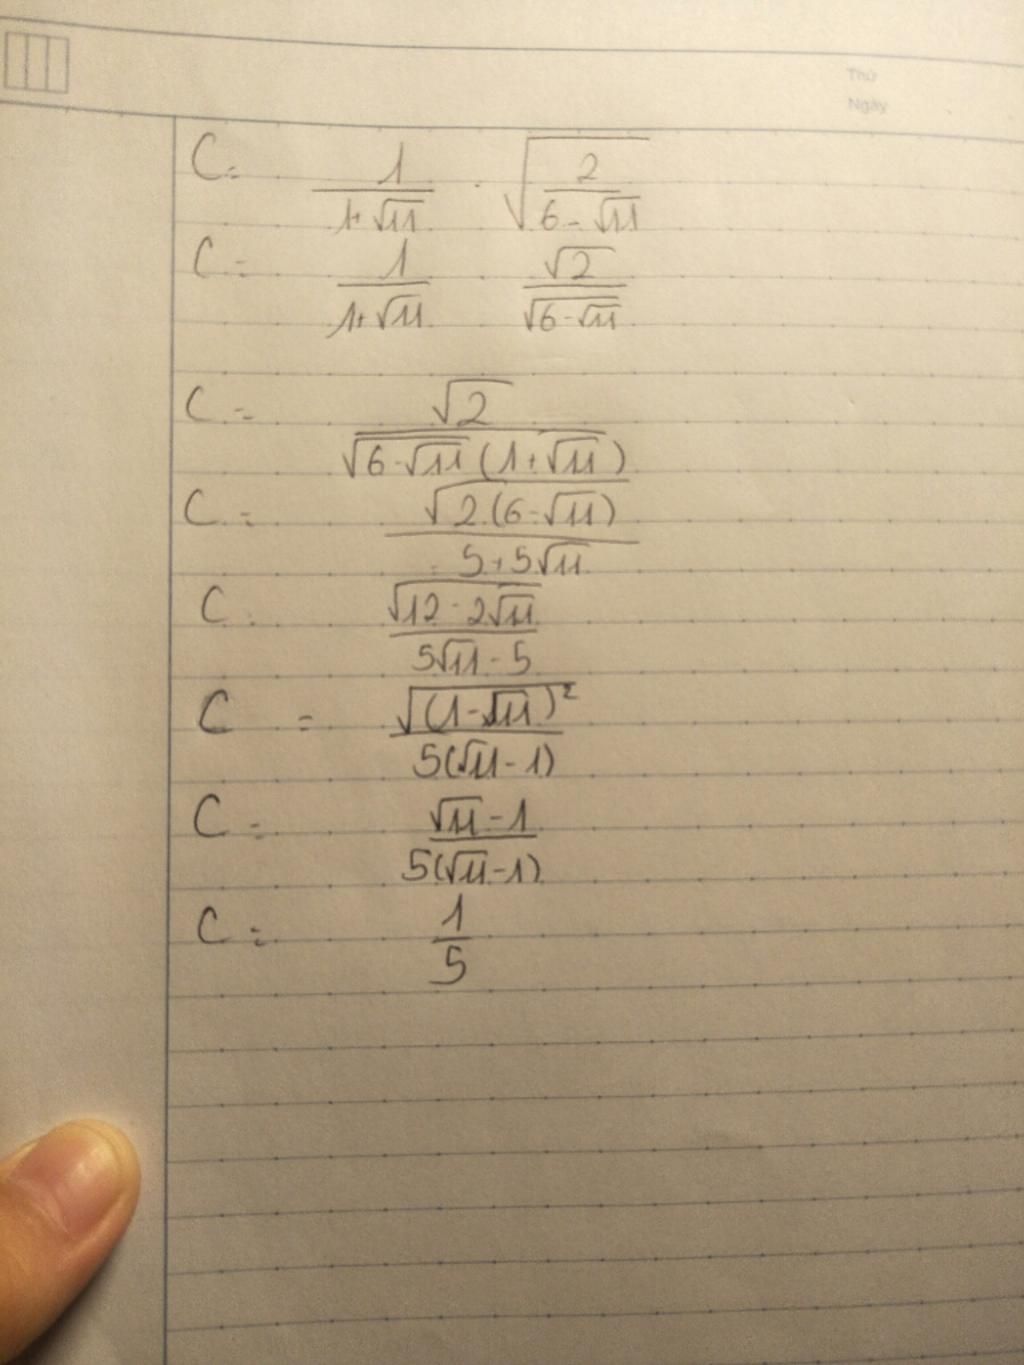 Thứ
Ngày
C = 1/(1+√11) · √(2/(6-√11))
C = 1/(1+√11) · √2/√(6-√11)
C = √2/(√(6-√11)(1+√11))
C = √(2.(6-√11))/(-5+5√11)
C = √(12-2√11)/(5√11-5)
C = √((1-√11)²)/(5(√11-1))
C = (√11-1)/(5(√11-1))
C = 1/5